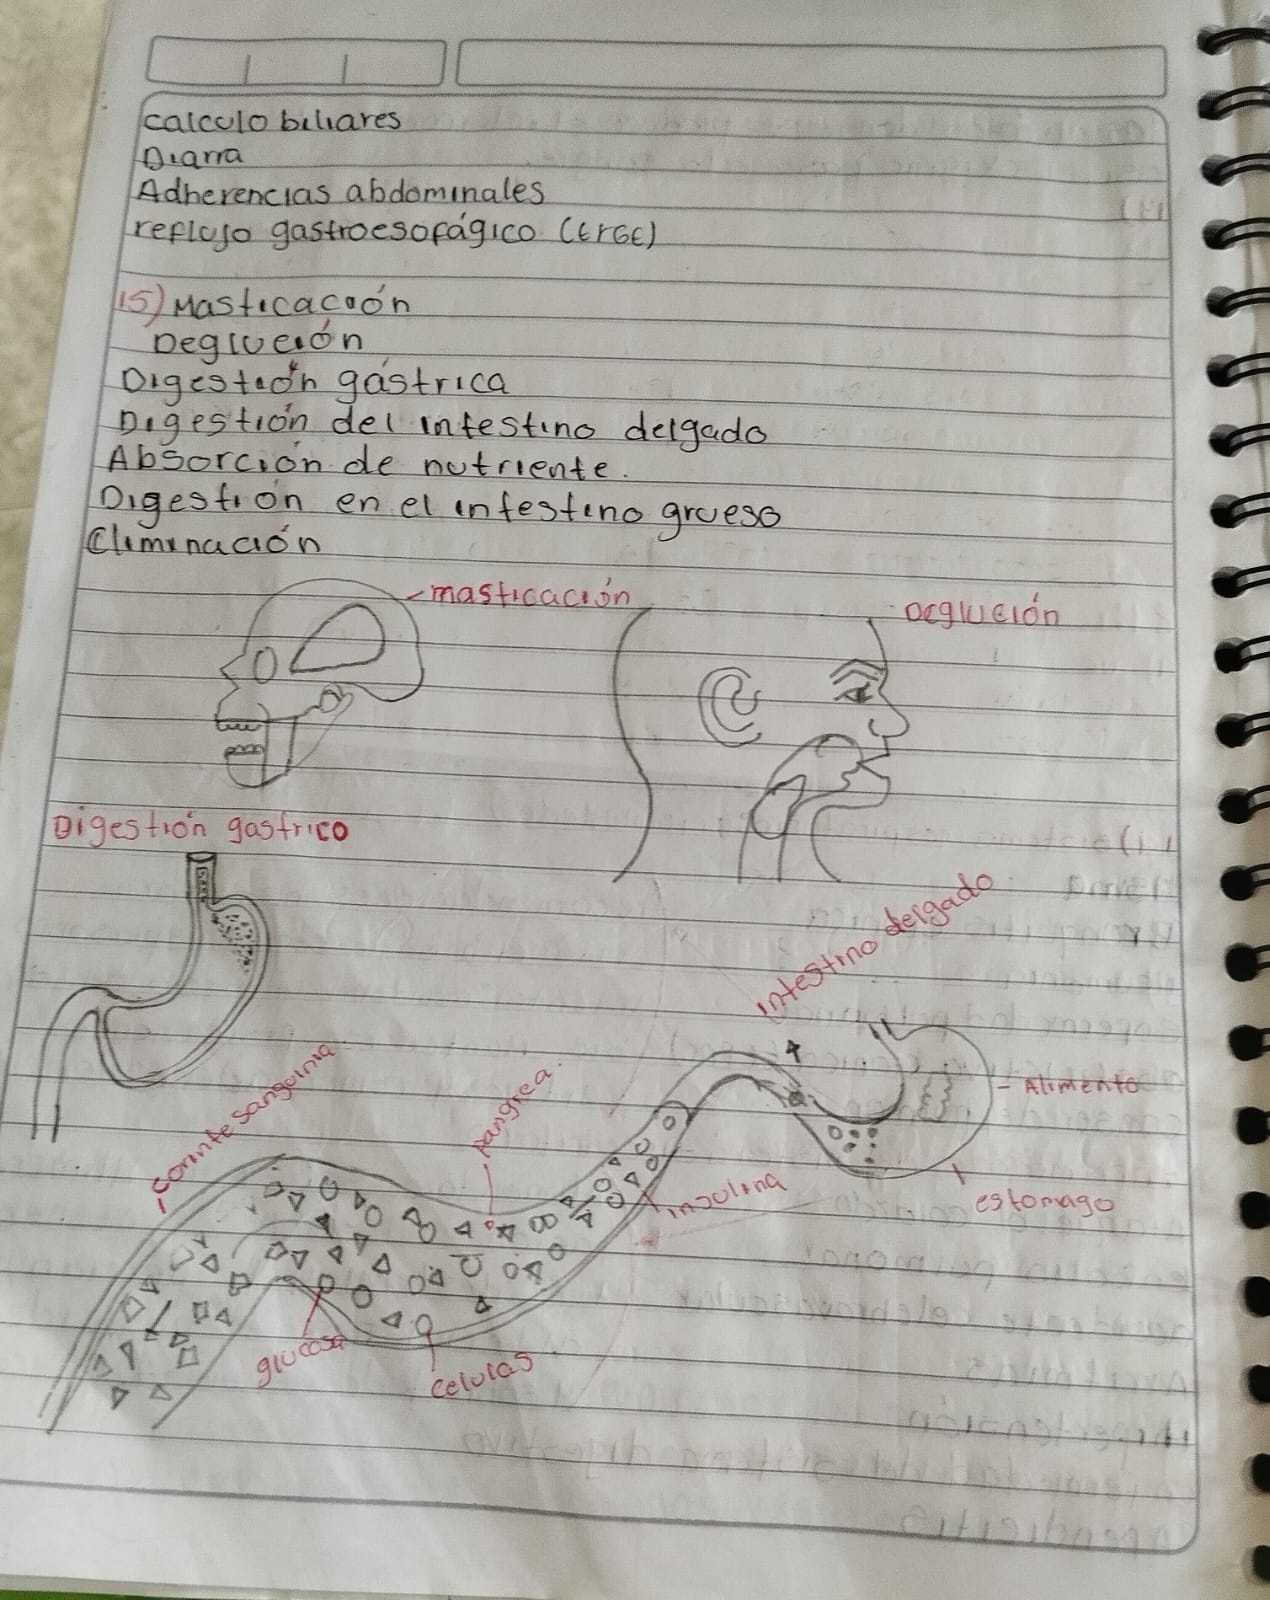 calculo biliares
Diarra
Adherencias abdominales
reflujo gastroesofágico (ErGE)
15) Masticación
Deglución
Digestión gástrica
Digestión del intestino delgado
Absorción de nutriente.
Digestión en el intestino grueso
Eliminación
masticación
Deglución
Digestión gastrico
intestino delgado
Alimento
estomago
corrinte sanguinia
pangrea.
insulina
glucosa
celulas